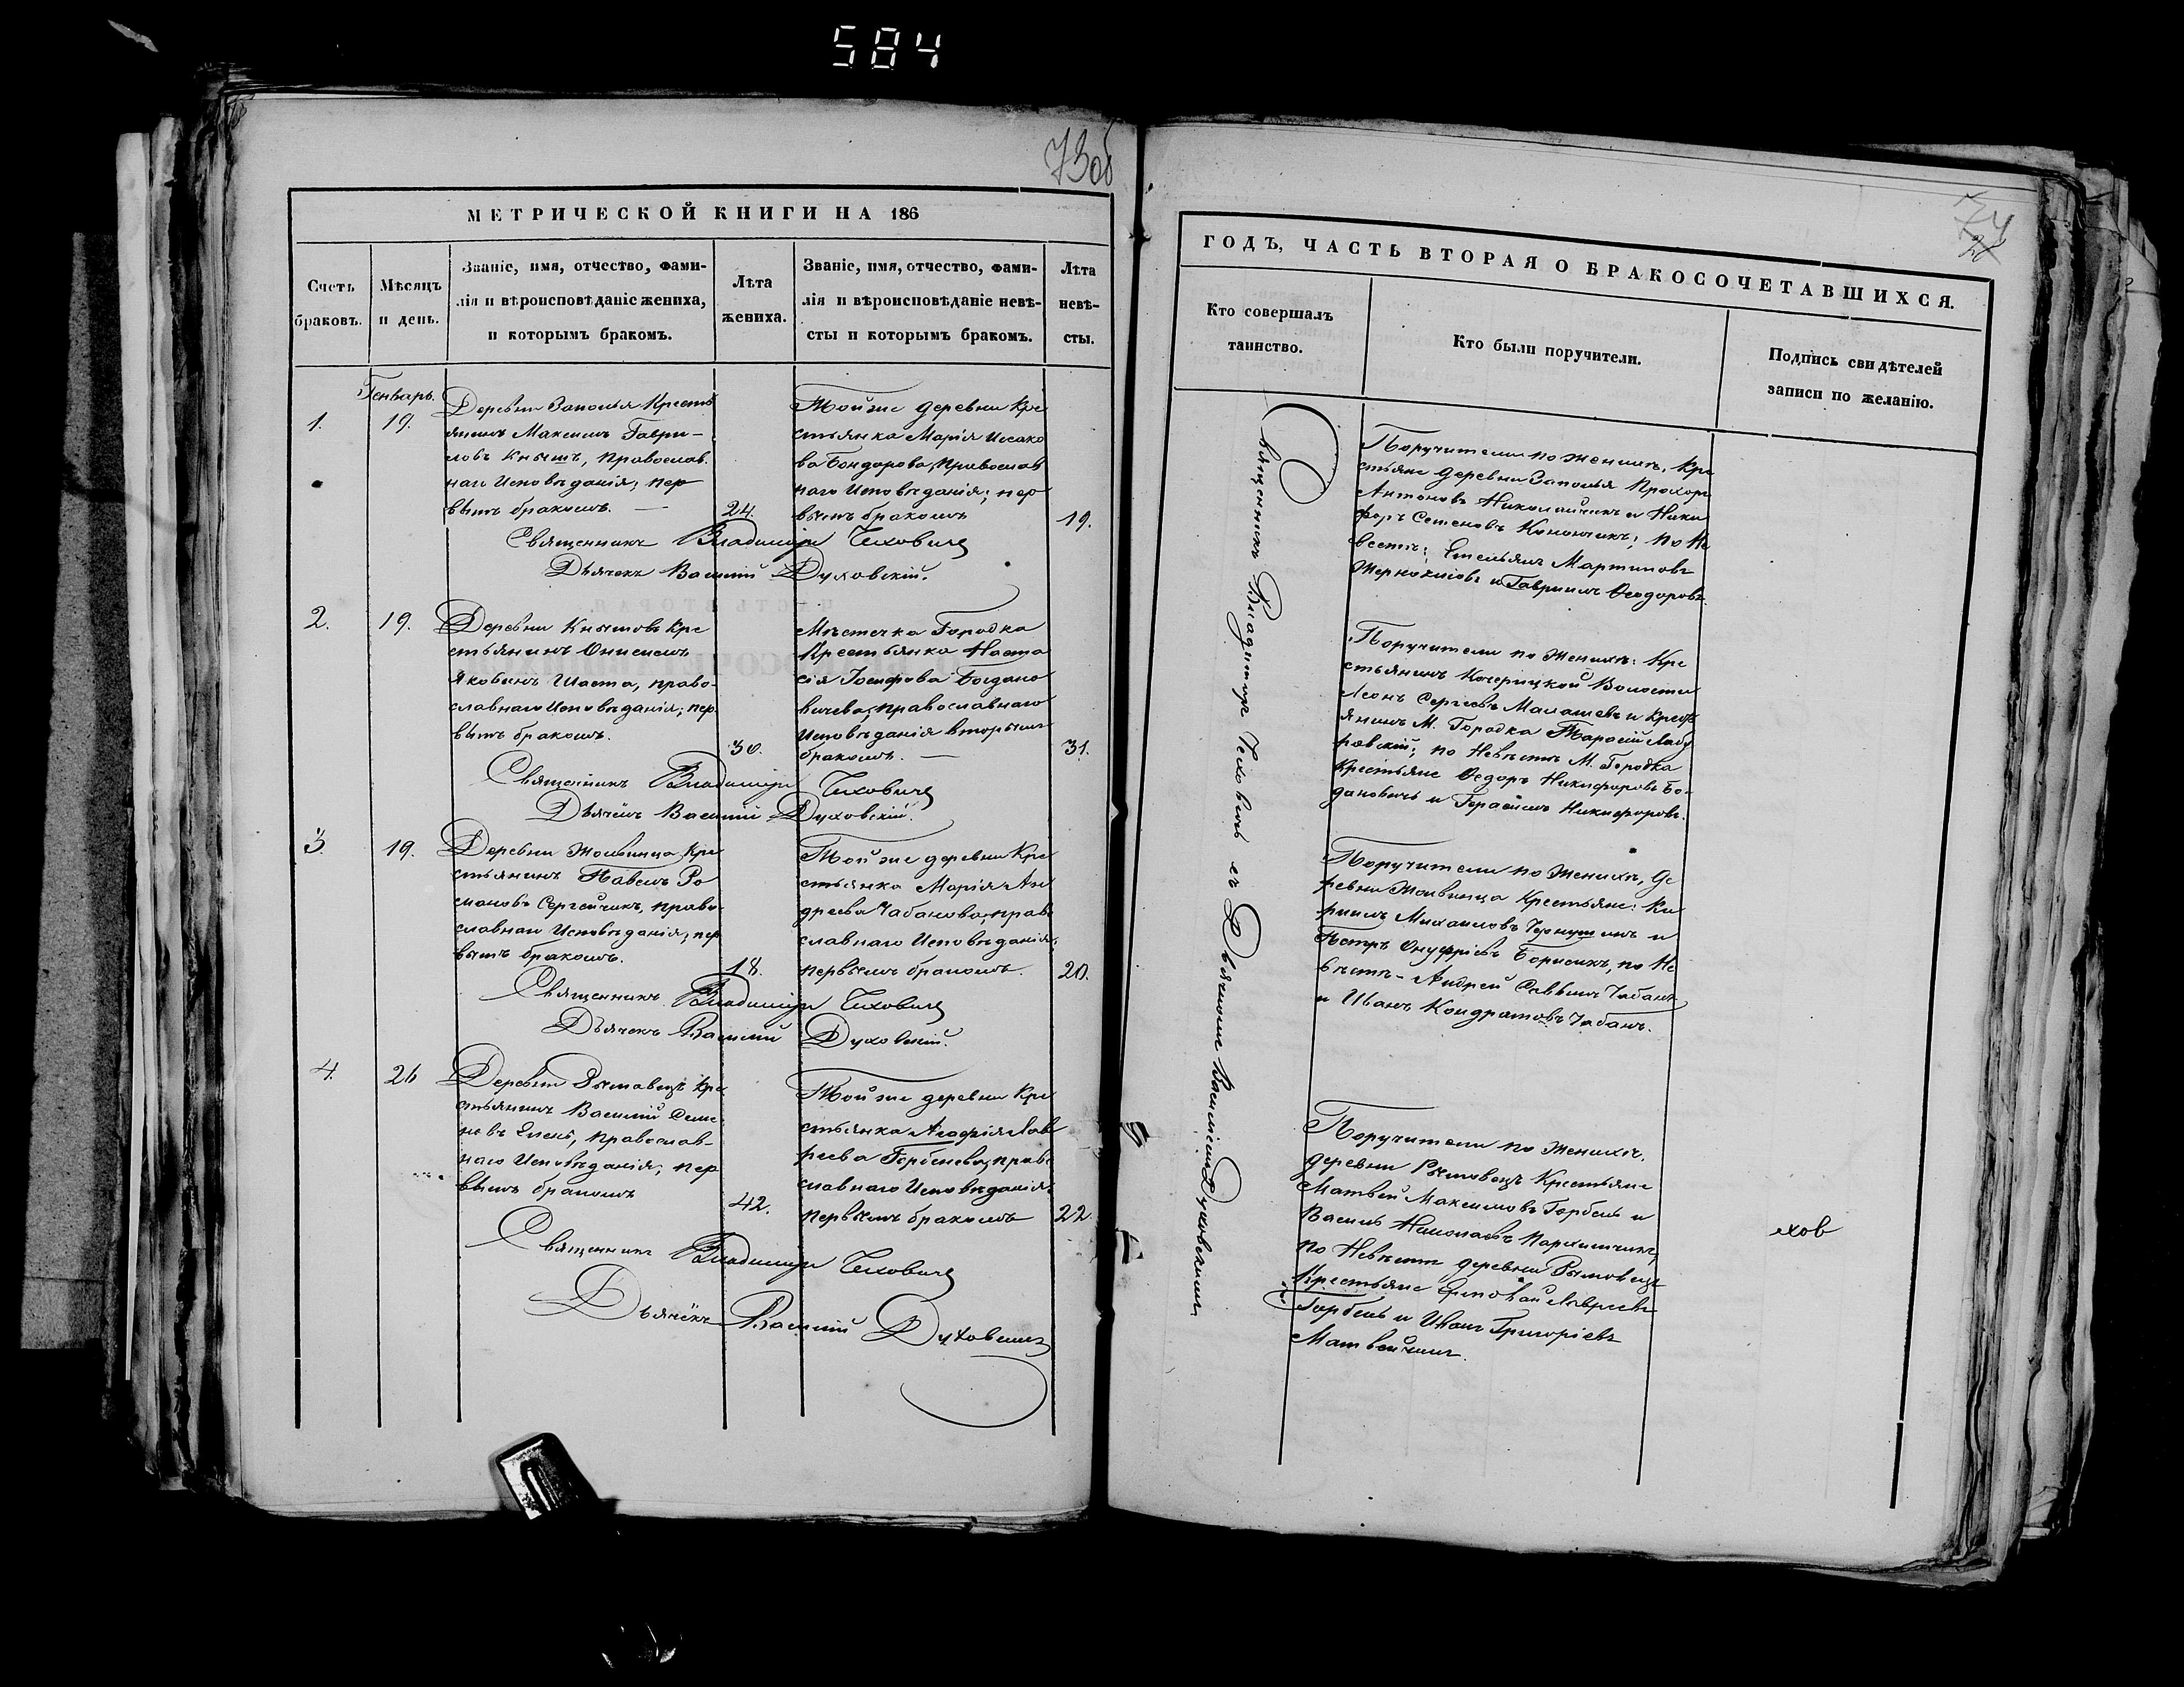 584
73об
МЕТРИЧЕСКОЙ КНИГИ НА 186
Счетъ браковъ.
Мѣсяцъ и день.
Званіе, имя, отчество, фами-
лія и вѣроисповѣданіе жениха,
и которымъ бракомъ.
Лѣта жениха.
Званіе, имя, отчество, фами-
лія и вѣроисповѣданіе невѣ-
сты и которымъ бракомъ.
Лѣта невѣ-
сты.
Генварь.
1.
19.
Деревни Заполья Кресть
янинъ Максимъ Гаври-
ловъ Кнышъ, Православ
наго Исповѣданія; пер
вымъ бракомъ. —
24.
Той же деревни Кре
стьянка Марія Исако
ва Бондарова, Православ
наго Исповѣданія; пер
вымъ бракомъ
19.
Священникъ Владиміръ Чеховичъ
Дьячекъ Василій Духовскій.
2.
19.
Деревни Кнышовъ Кре
стьянинъ Онисимъ
Яковинъ Шаста, право-
славнаго Исповѣданія; пер
вымъ бракомъ.
30.
Мѣстечка Городка
Крестьянка Наста
сія Іосифова Богдано
вичева; православнаго
Исповѣданія вторымъ
бракомъ. —
31.
Священникъ Владиміръ Чеховичъ
Дьячекъ Василій Духовскій.
3.
19.
Деревни Жолвинца Кре
стьянинъ Павелъ Ро
мановъ Сергейчикъ, право-
славнаго Исповѣданія; пер
вымъ бракомъ.
18.
Той же деревни Кре
стьянка Марія Ан
дреева Чабанова, право
славнаго Исповѣданія;
первымъ бракомъ.
20.
Священникъ Владиміръ Чеховичъ
Дьячекъ Василій Духовскій.
4.
26
Деревни Рымовецъ Кре
стьянинъ Василій Семе
новъ Елень, Православ-
наго Исповѣданія; пер
вымъ бракомъ
42.
Той же деревни Кре
стьянка Агафія Лав
реева Горбелева; право
славнаго Исповѣданія
первымъ бракомъ
22
Священникъ Владиміръ Чеховичъ
Дьячекъ Василій Духовскій
74
ГОДЪ, ЧАСТЬ ВТОРАЯ О БРАКОСОЧЕТАВШИХСЯ.
Кто совершалъ
таинство.
Кто были поручители.
Подпись свидѣтелей
записи по желанію.
Священникъ Владиміръ Чеховичъ съ Дьячкомъ Василіемъ Духовскимъ
Поручители по женихѣ, Кре
стьяне деревни Заполья Прохоръ
Антоновъ Николайчикъ и Ники
форъ Семеновъ Конончикъ; по Не
вестѣ: Емельянъ Мартиновъ
и Гавріилъ Ѳеодоровъ.
Поручители по Женихѣ: Кре
стьянинъ Волости
Леонъ Сергеевъ Малашевъ и Кресть
янинъ М. Городка Тарасій
по Невѣстѣ М. Городка
Крестьяне Ѳедоръ Никифоровъ Бо-
дановичъ и Герасимъ Никифоровъ.
Поручители по Женихѣ, де
ревни Жолвинца Крестьяне: Ки
риилъ Михаиловъ и
Петръ Онуфріевъ Борисикъ, по Не
вѣстѣ - Андрей Саввинъ Чабанъ
и Иванъ Кондратовъ Чабанъ.
Поручители по Женихѣ.
деревни Рымовецъ Крестьяне
Матвей Максимовъ Горбель и
Василь Николаевъ
по Невѣстѣ деревни Рымовецъ
Крестьяне Лавреевъ
Горбель и Иванъ Григоріевъ
Матвейчикъ.